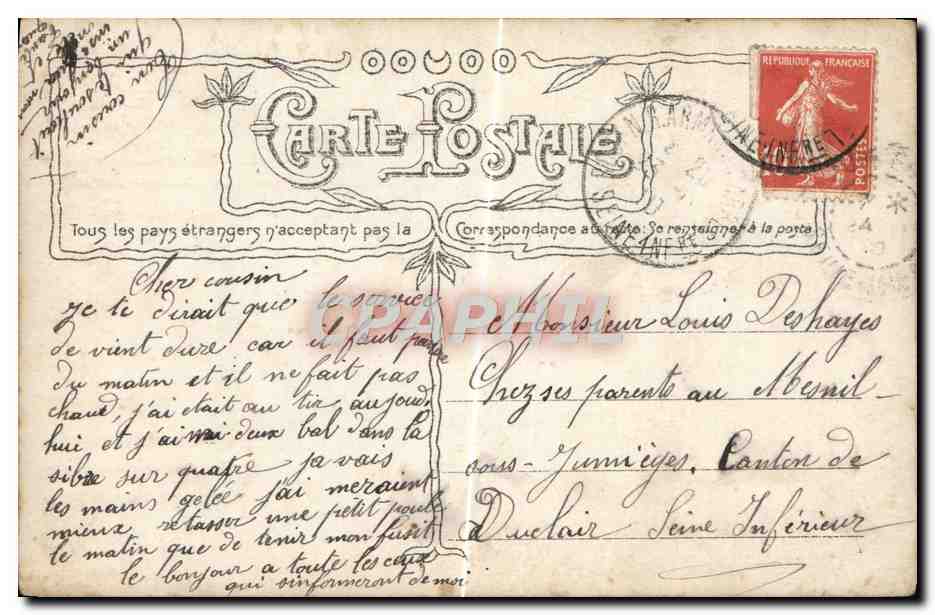 Ton cousin
qui
un bonjour
RÉPUBLIQUE FRANÇAISE
POSTES
CARTE POSTALE
SEINE INFRE
Tous les pays étrangers n'acceptent pas la Correspondance au recto. Se renseigner à la poste
Cher cousin
Je te dirait que le service
de vient dure car il faut parlre
du matin et il ne fait pas
chaud, j'ai était au tir aujourd
hui et j'ai mi deux bal dans la
sible sur quatre java is
les mains gelée j'ai meraient
mieux retasser une petit poule
le matin que de tenir mon fusit
le bonjour a toute les ceux
qui s'informeront de moi
Monsieur Louis Deshayes
Chez ses parents au Mesnil-
sous-Jumièges. Canton de
Duclair Seine Inférieur
CPAPHIL